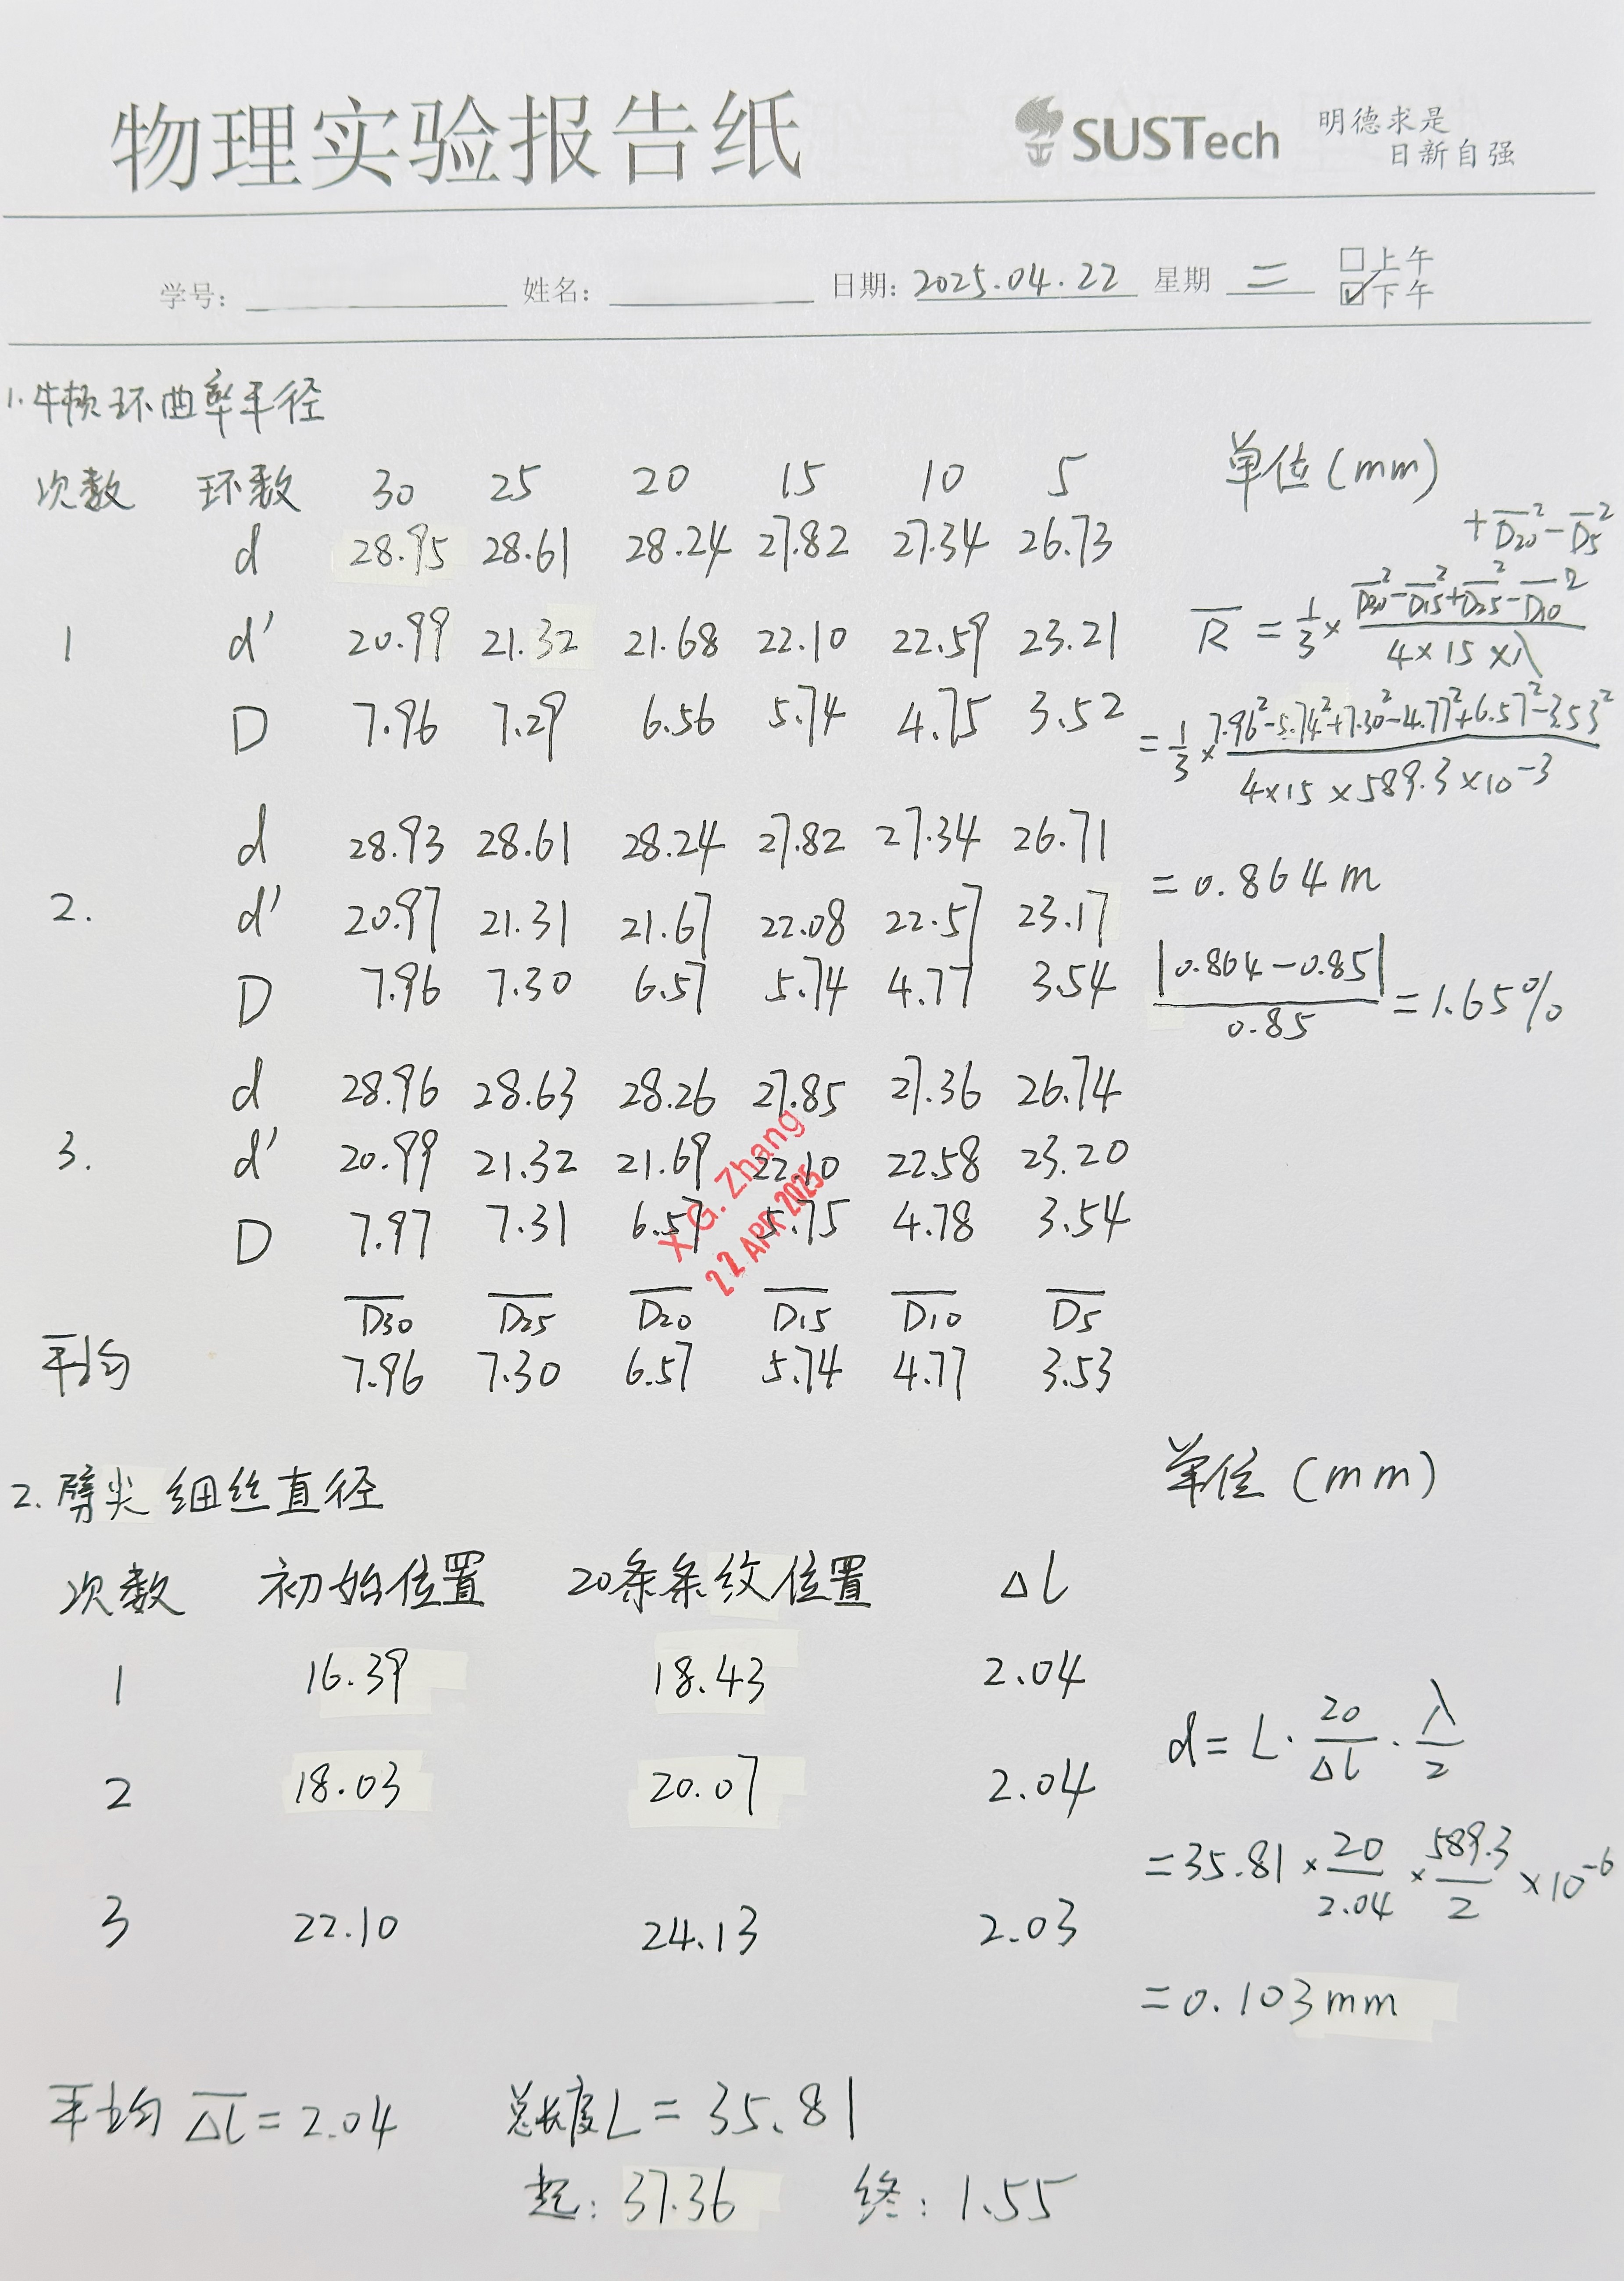 物理实验报告纸
SUSTech
明德求是
日新自强
学号: 姓名: 日期: 2025.04.22 星期 二 □上午
☑下午
1.牛顿环曲率半径
单位(mm)
次数 环数 30 25 20 15 10 5
d 28.95 28.61 28.24 27.82 27.34 26.73
1 d' 20.99 21.32 21.68 22.10 22.59 23.21
D 7.96 7.29 6.56 5.74 4.75 3.52
d 28.93 28.61 28.24 27.82 27.34 26.71
2. d' 20.97 21.31 21.67 22.08 22.57 23.17
D 7.96 7.30 6.57 5.74 4.77 3.54
d 28.96 28.63 28.26 27.85 27.36 26.74
3. d' 20.99 21.32 21.69 22.10 22.58 23.20
D 7.97 7.31 6.57 5.75 4.78 3.54
X.G. Zhang
22 APR 2025
D̅30 D̅25 D̅20 D̅15 D̅10 D̅5
平均 7.96 7.30 6.57 5.74 4.77 3.53
+D̅20²-D̅5²
R̅ = 1/3 × (D̅30²-D̅15²+D̅25²-D̅10²)/(4×15×λ)
= 1/3 × (7.96²-5.74²+7.30²-4.77²+6.57²-3.53²)/(4×15×589.3×10⁻³)
= 0.864m
|0.864-0.85|/0.85 = 1.65%
2.劈尖细丝直径
单位(mm)
次数 初始位置 20条条纹位置 Δl
1 16.39 18.43 2.04
2 18.03 20.07 2.04
3 22.10 24.13 2.03
d = L·20/Δl·λ/2
= 35.81×20/2.04×589.3/2×10⁻⁶
= 0.103mm
平均 Δl̅ = 2.04 总长度L = 35.81
起: 37.36 终: 1.55